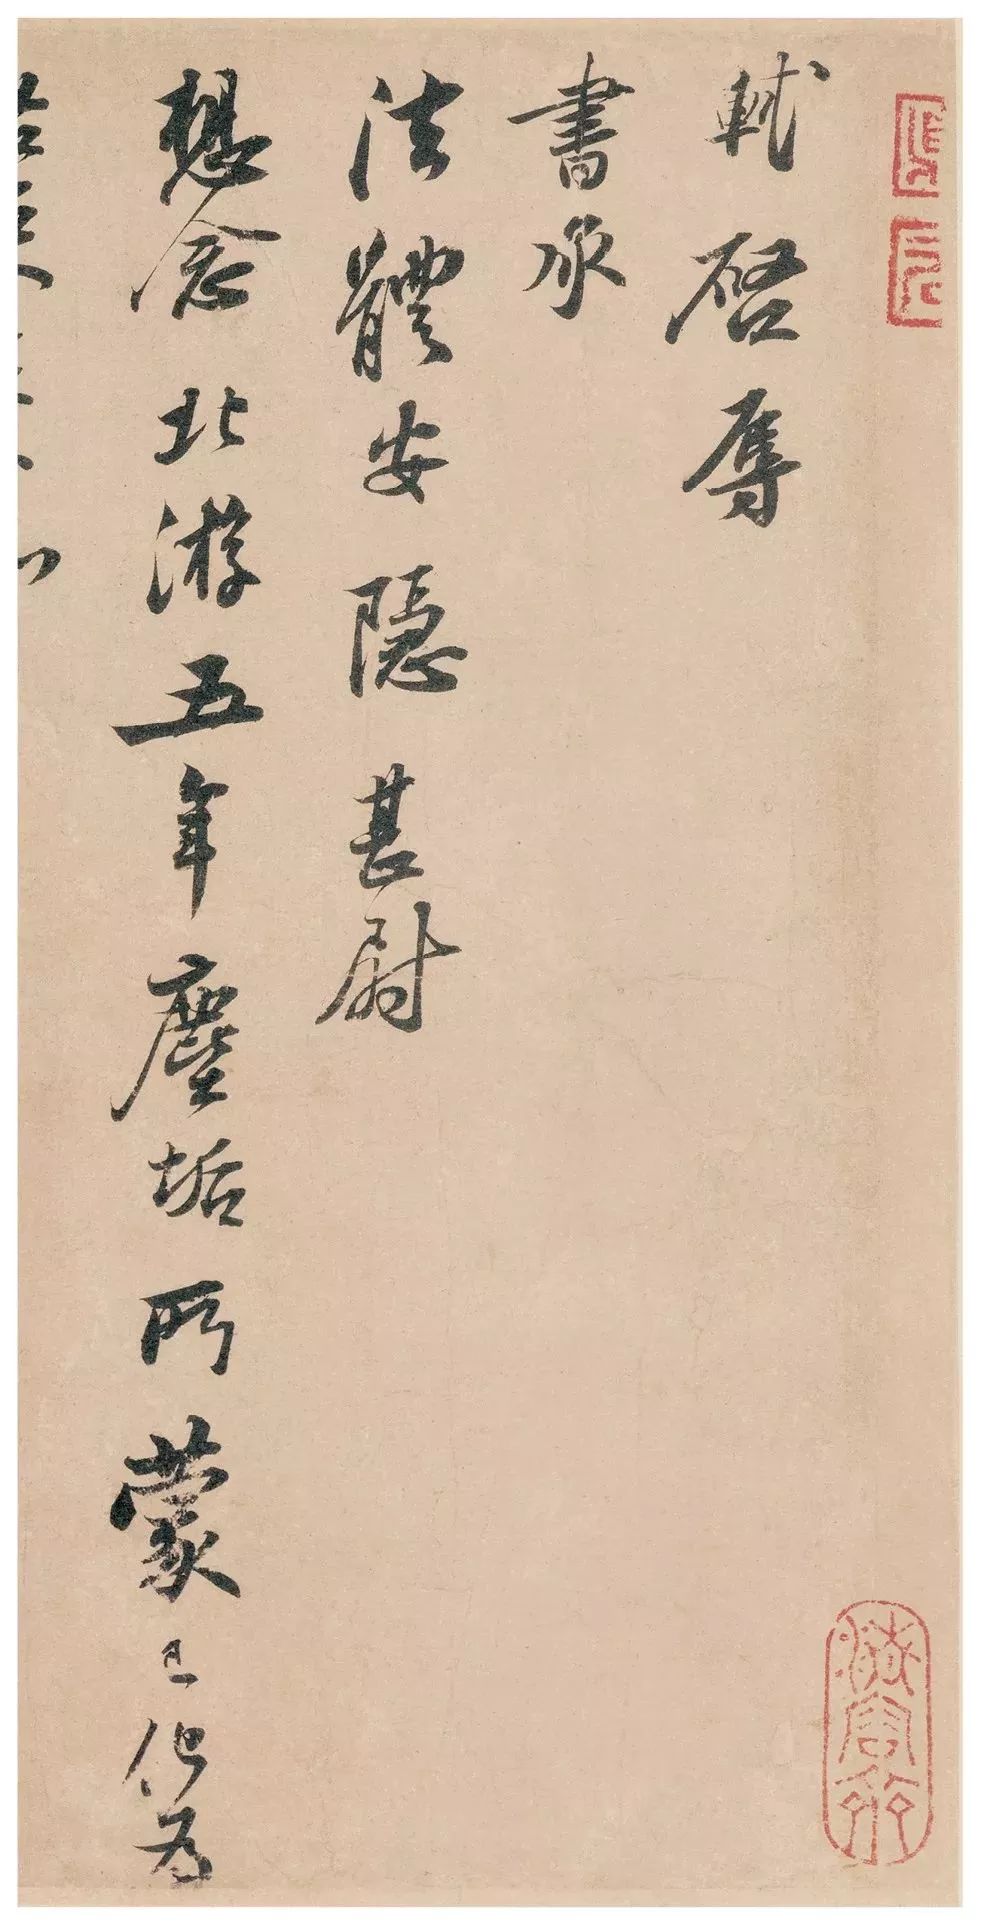 軾啓辱
書承
法體安隱甚尉
想念北游五年塵垢所蒙已化為